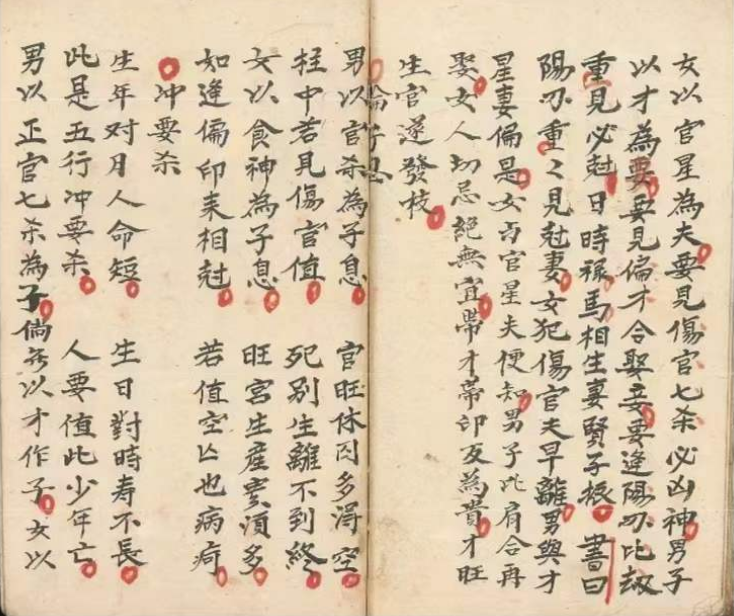 女以官星為夫要見傷官七杀必凶神男子
以才為妻要見偏才合娶妾要逢陽刃比劫
重見必尅日時祿馬相生妻賢子振 書曰
陽刃重々見尅妻女犯傷官夫早離男與才
星妻偏是女占官星夫便知男子比肩合再
娶女人切忌絕無宜帶才帶印反為貴才旺
生官遂發枝
論子息
男以官杀為子息 官旺休囚多淂空
柱中若見傷官值 死別生離不到終
女以食神為子息 旺宮生產實須多
如逢偏印来相尅 若值空亡也病疴
冲要杀
生年对月人命短 生日對時寿不長
此是五行冲要杀 人要值此少年亡
男以正官七杀為子倘無以才作子女以